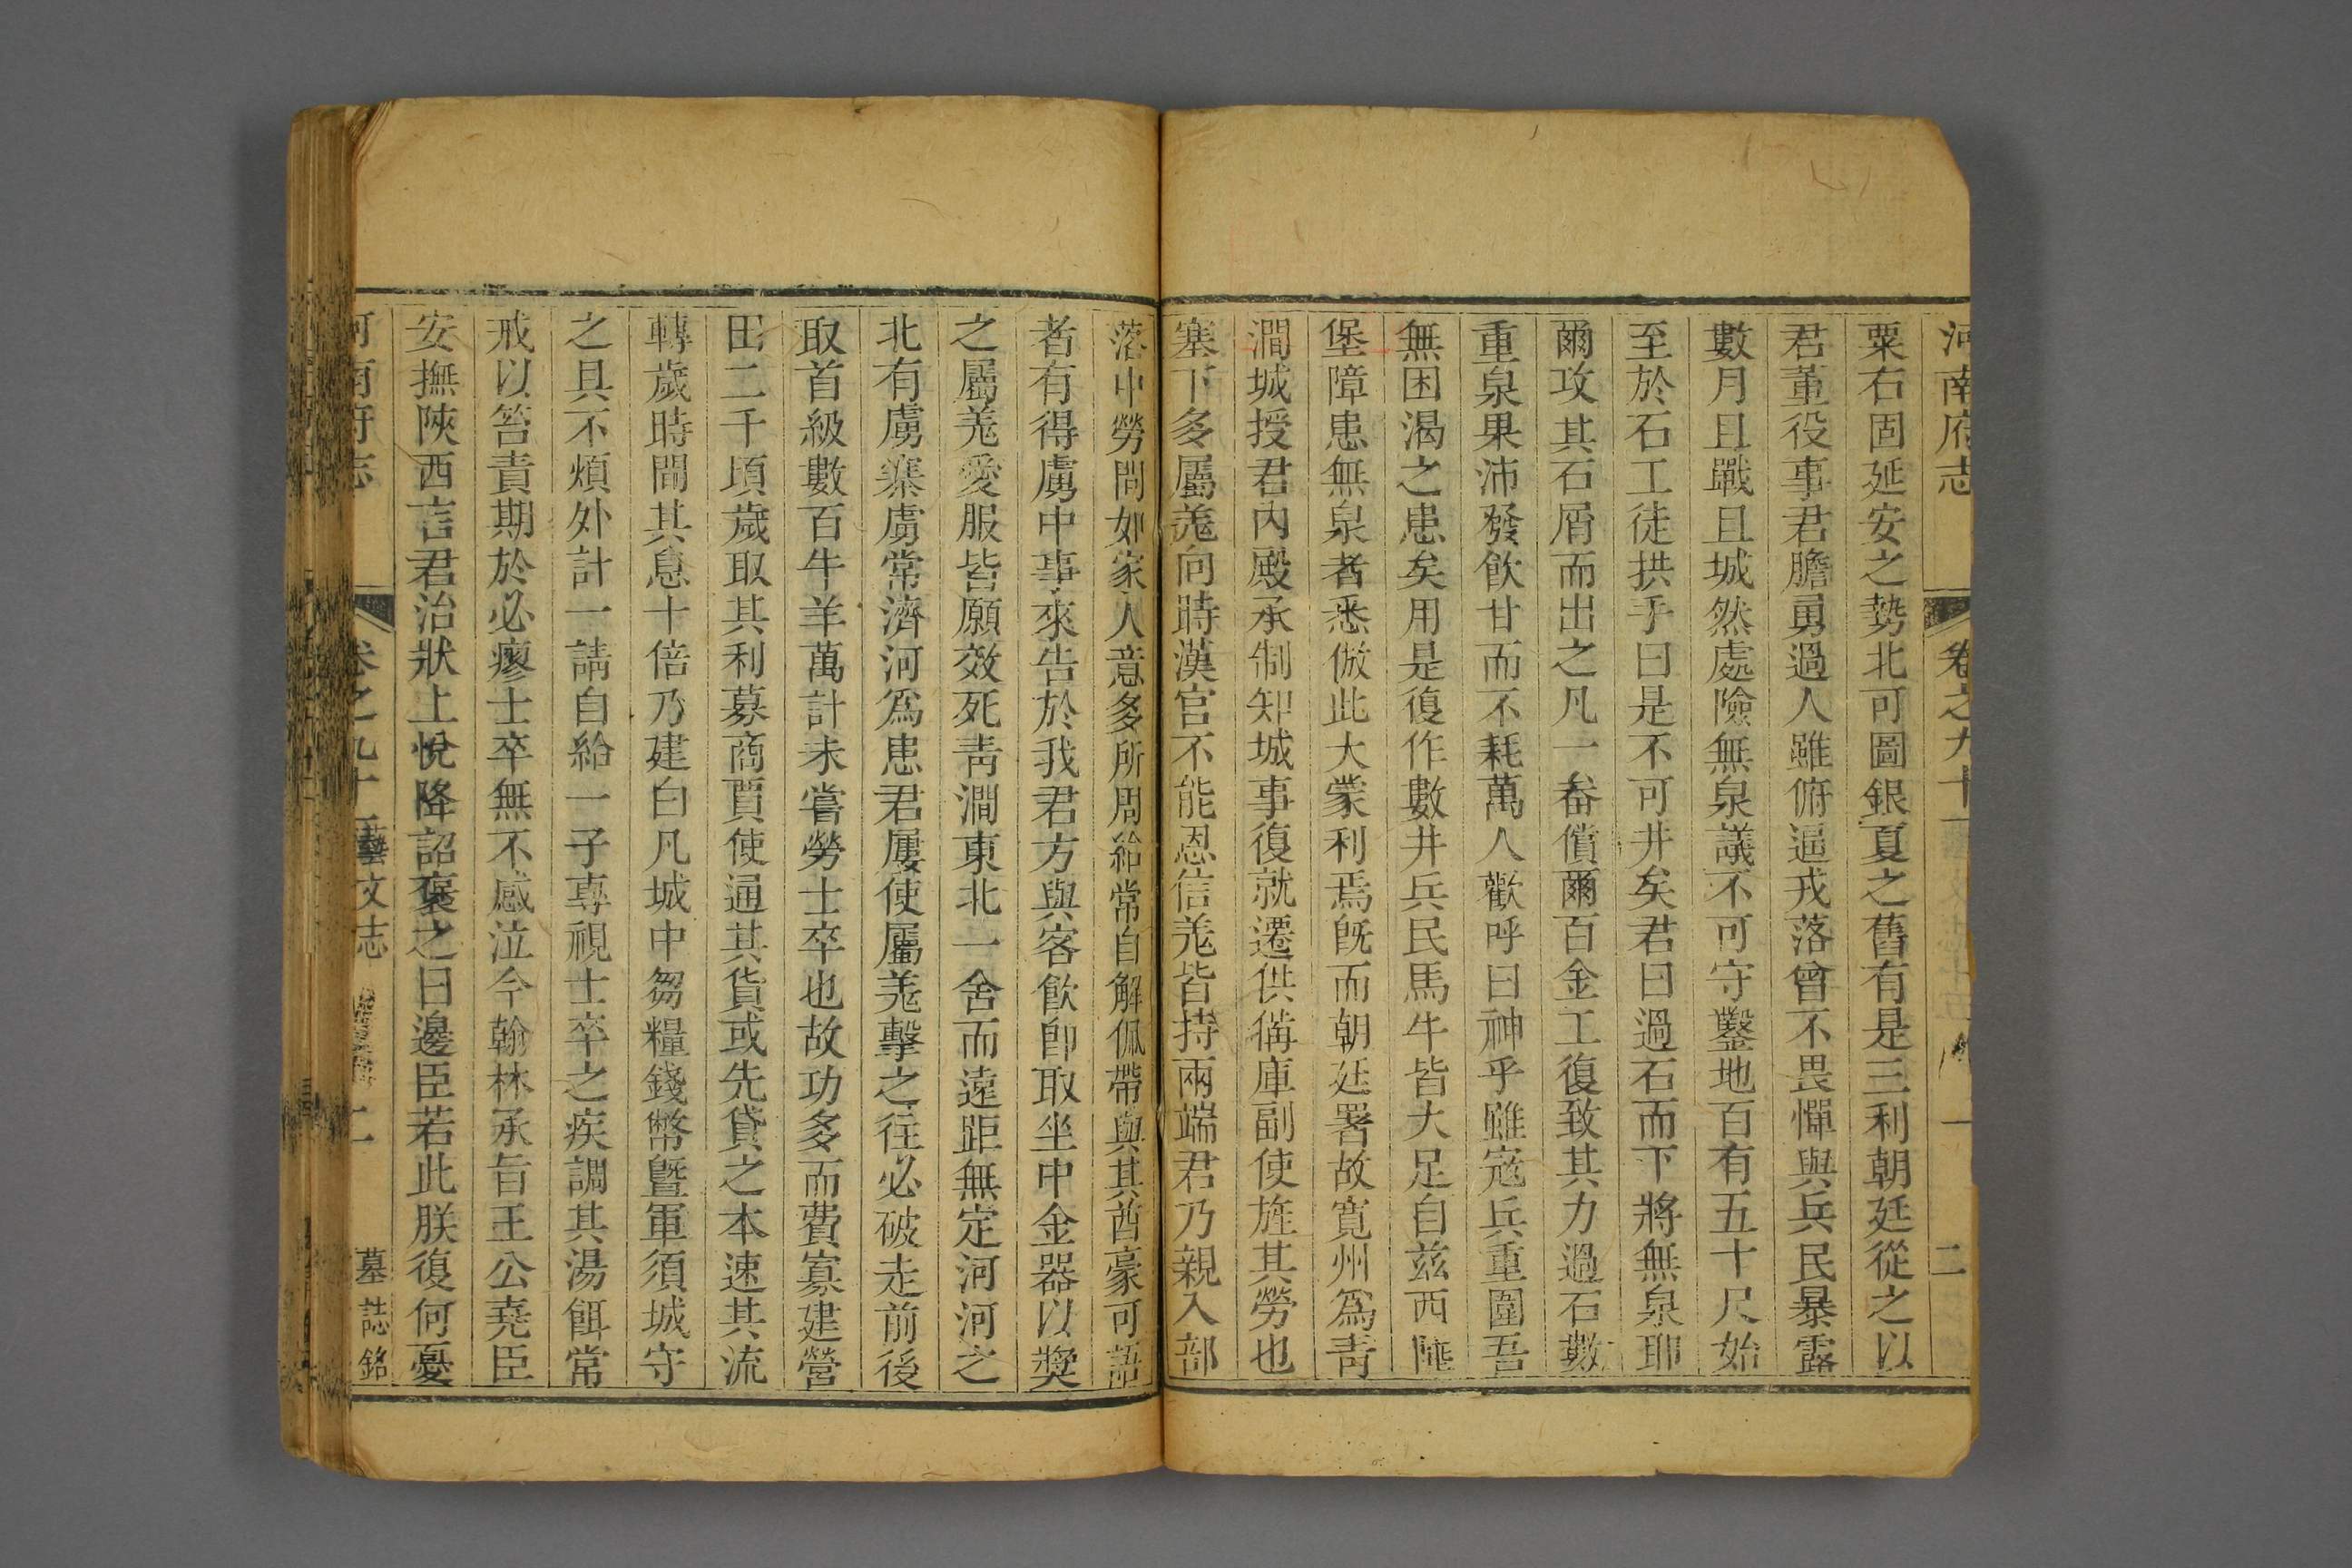 河南府志 卷之九十 二
粟右固延安之勢北可圖銀夏之舊有是三利朝廷從之以
君董役事君膽勇過人雖俯逼戎落曾不畏憚與兵民暴露
數月且戰且城然處險無泉議不可守鑿地百有五十尺始
至於石工徒拱手曰是不可井矣君曰過石而下將無泉耶
爾攻其石屑而出之凡一畚償爾百金工復致其力過石數
重泉果沛發飲甘而不耗萬人歡呼曰神乎雖寇兵重圍吾
無困渴之患矣用是復作數井兵民馬牛皆大足自茲西陲
堡障患無泉者悉倣此大蒙利焉旣而朝廷署故寬州爲靑
澗城授君內殿承制知城事復就遷供備庫副使旌其勞也
塞下多屬羗向時漢官不能恩信羗皆持兩端君乃親入部
落中勞問如家人意多所周給常自解佩帶與其酋豪可語
者有得虜中事來告於我君方與客飲卽取坐中金器以獎
之屬羗愛服皆願效死靑澗東北一舍而遠距無定河河之
北有虜寨虜常濟河爲患君屢使屬羗擊之往必破走前後
取首級數百牛羊萬計未嘗勞士卒也故功多而費寡建營
田二千頃歲取其利募商賈使通其貨或先貸之本速其流
轉歲時間其息十倍乃建白凡城中芻糧錢幣曁軍須城守
之具不煩外計一請自給一子專視士卒之疾調其湯餌常
戒以笞責期於必瘳士卒無不感泣今翰林承旨王公堯臣
安撫陝西言君治狀上悅降詔褒之曰邊臣若此朕復何憂
河南府志 卷之九十 藝文志 二 墓誌銘